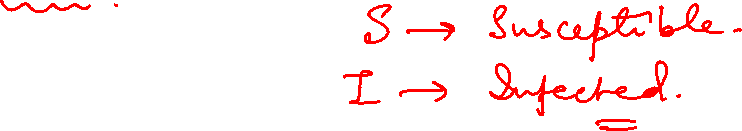 S → Susceptible.
I → Infected.